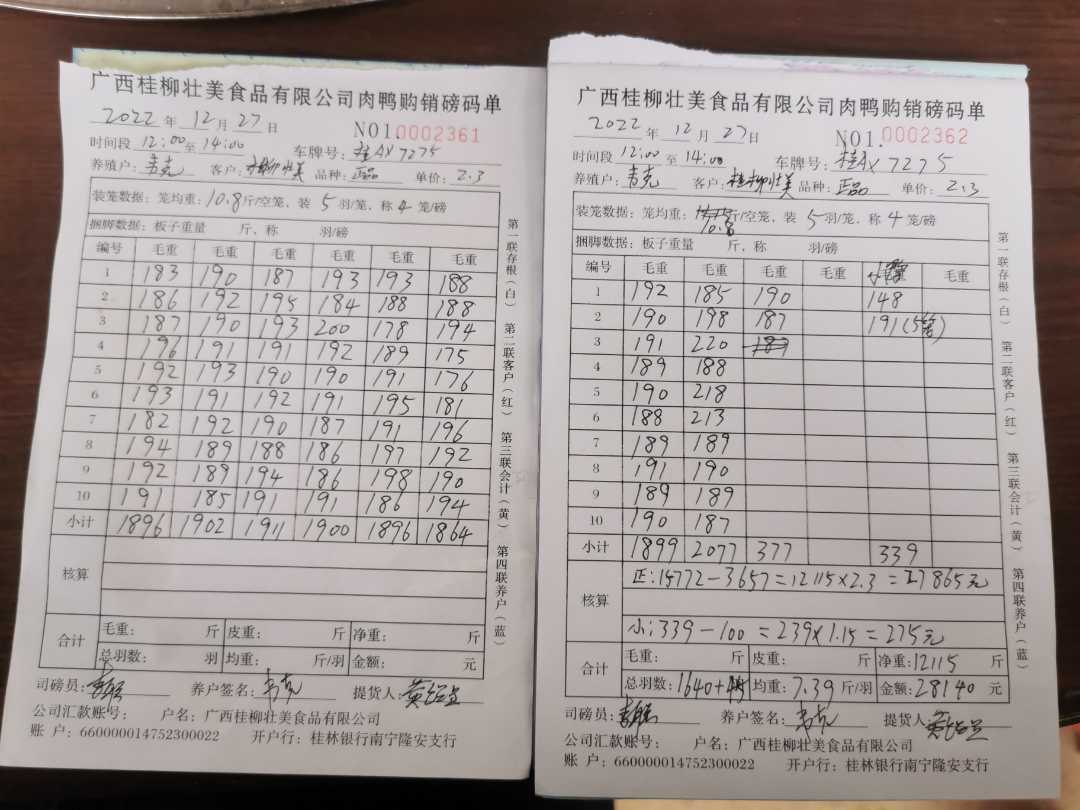 广西桂柳壮美食品有限公司肉鸭购销磅码单
2022 年 12 月 27 日 NO1.0002361
时间段 12:00 至 14:00 车牌号: 桂AX7275
养殖户: 韦克 客户: 桂柳壮美 品种: 正品 单价: 2.3
装笼数据: 笼均重: 10.8 斤/空笼、装 5 羽/笼、称 4 笼/磅
捆脚数据: 板子重量 斤、称 羽/磅
编号 毛重 毛重 毛重 毛重 毛重 毛重
1 183 190 187 193 193 188
2 186 192 195 184 188 188
3 187 190 193 200 178 194
4 196 191 191 192 189 175
5 192 193 190 190 191 176
6 193 191 192 191 195 181
7 182 192 190 187 191 196
8 194 189 188 186 197 192
9 192 189 194 186 198 190
10 191 185 191 191 186 194
小计 1896 1902 1911 1900 1896 1864
核算
合计 毛重: 斤 皮重: 斤 净重: 斤
总羽数: 羽 均重: 斤/羽 金额: 元
司磅员: 养户签名: 韦克 提货人:
公司汇款账号: 户名: 广西桂柳壮美食品有限公司
账 户: 660000014752300022 开户行: 桂林银行南宁隆安支行
第一联存根(白) 第二联客户(红) 第三联会计(黄) 第四联养户(蓝)
广西桂柳壮美食品有限公司肉鸭购销磅码单
2022 年 12 月 27 日 NO1.0002362
时间段 12:00 至 14:00 车牌号: 桂AX7275
养殖户: 韦克 客户: 桂柳壮美 品种: 正品 单价: 2.3
装笼数据: 笼均重: 10.8 斤/空笼、装 5 羽/笼、称 4 笼/磅
捆脚数据: 板子重量 斤、称 羽/磅
编号 毛重 毛重 毛重 毛重 毛重
1 192 185 190 148
2 190 198 187 191(5笼)
3 191 220 187
4 189 188
5 190 218
6 188 213
7 189 189
8 191 190
9 189 189
10 190 187
小计 1899 2077 377 339
核算 正:15772-3657=12115×2.3=27865元
小:339-100=239×1.15=275元
合计 毛重: 斤 皮重: 斤 净重: 12115 斤
总羽数: 1640+45 均重: 7.39 斤/羽 金额: 28140 元
司磅员: 养户签名: 韦克 提货人:
公司汇款账号: 户名: 广西桂柳壮美食品有限公司
账 户: 660000014752300022 开户行: 桂林银行南宁隆安支行
第一联存根(白) 第二联客户(红) 第三联会计(黄) 第四联养户(蓝)